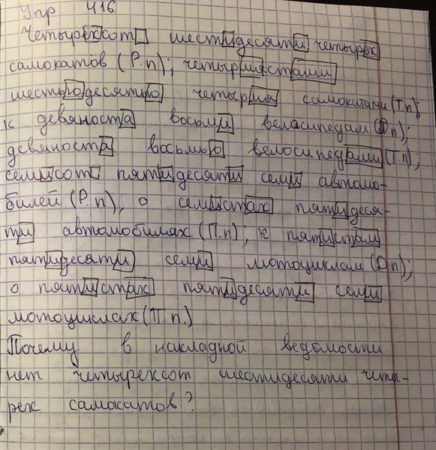 Упр 416
Четырёхсот шестидесяти четырёх
самокатов (Р.п); четырмястами
шестьюдесятью четырмя самокатами (Т.п);
к девяноста восьми веласипедам (Д.п);
девяноста восьмью велосипедами (Т.п),
семисот пятидесяти семи автомо-
билей (Р.п), о семистах пятидеся-
ти автомобилях (П.п); к пятистам
пятидесяти семи мотоциклам (Д.п);
о пятистах пятидесяти семи
мотоциклах (П п.)
Почему в накладной ведомости
нет четырёхсот шестидесяти четы-
рёх самокатов?